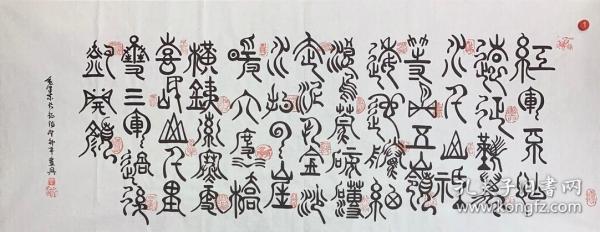 紅軍不怕
遠征難萬
水千山祗
等閒五嶺
逶迤騰細
浪烏蒙磅礴
走泥丸金沙
水拍雲崖
暖大渡橋
橫鐵索寒更
喜岷山千里
雪三軍過後
盡開顏
毛澤東 癸卯年
孔夫子旧书网
www.kongfz.com